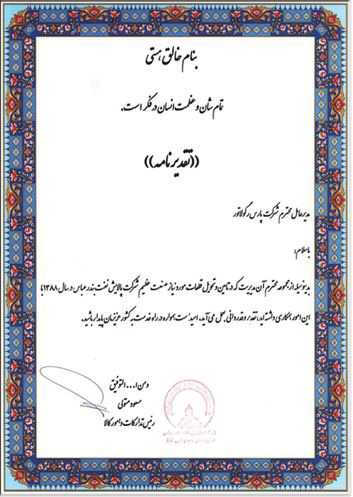 بنام خالق هستی
تمام شان و عظمت انسان در فکر است.
((تقدیرنامه))
مدیرعامل محترم شرکت پارس رگولاتور
باسلام؛
بدینوسیله از مجموعه محترم آن مدیریت که در تامین و تحویل قطعات مورد نیاز صنعت عظیم شرکت پالایش نفت بندرعباس در سال ۱۳۸۸ با
این امور همکاری داشته اید، تقدیر و قدردانی بعمل می آید، امید است همواره در راه خدمت به کشور عزیزمان پایدار باشید.
و من ا... التوفیق
مسعود متولی
رئیس تدارکات و امور کالا